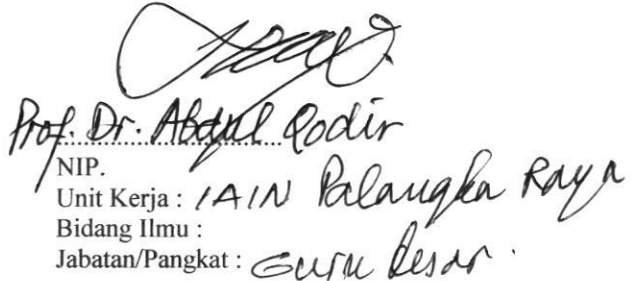 Prof. Dr. Abdul Qodir
NIP.
Unit Kerja : IAIN Palangka Raya
Bidang Ilmu :
Jabatan/Pangkat : Guru Besar.